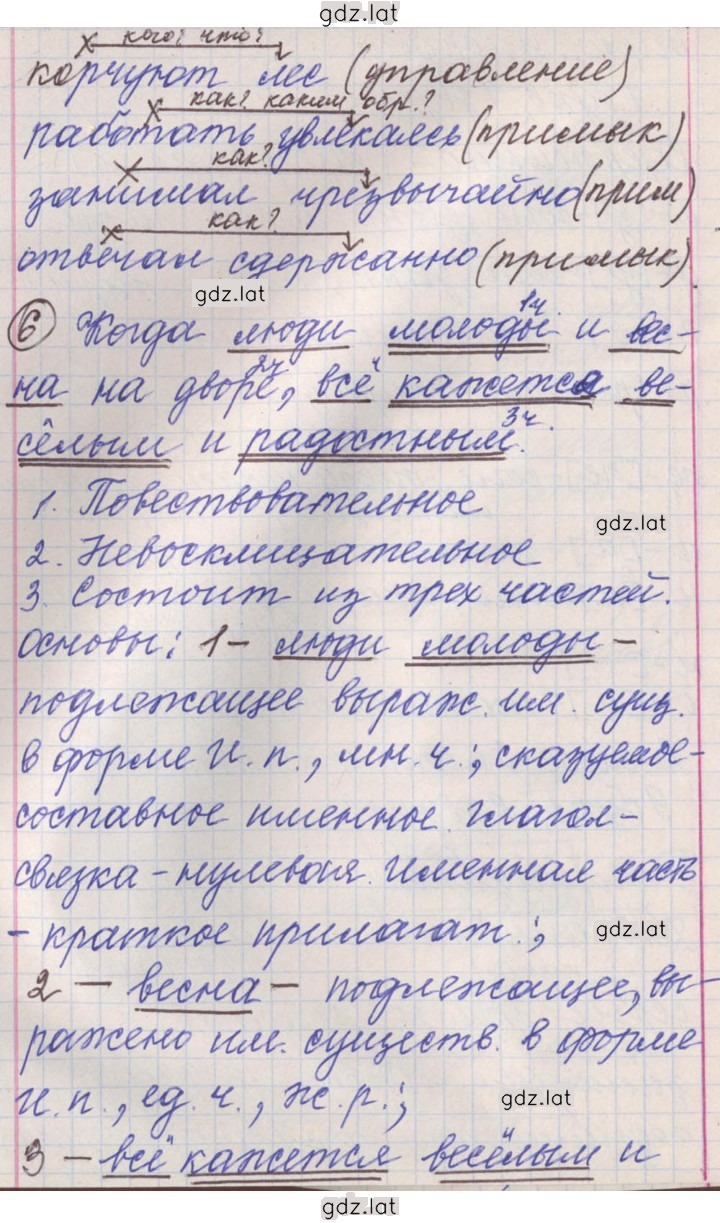 gdz.lat
кого? что?
корчуют лес (управление)
как? каким обр.?
работать увлекаясь (примык)
как?
занимал чрезвычайно (прим)
как?
отвечал сдержанно (примык)
gdz.lat
6 Когда люди молоды 1ч. и вес-
на на дворе 2ч, всё кажется ве-
сёлым и радостным 3ч.
1. Повествовательное
gdz.lat
2. Невосклицательное
3. Состоит из трех частей.
Основы: 1 – люди молоды –
подлежащее выраж. им. сущ.
в форме И.п., мн.ч.; сказуемое-
составное именное. Глагол-
связка – нулевая. Именная часть
- краткое прилагат.;
gdz.lat
2 – весна – подлежащее, вы-
ражено им. существ. в форме
И.п., ед.ч., ж.р.;
gdz.lat
3 – всё кажется весёлым и
gdz.lat